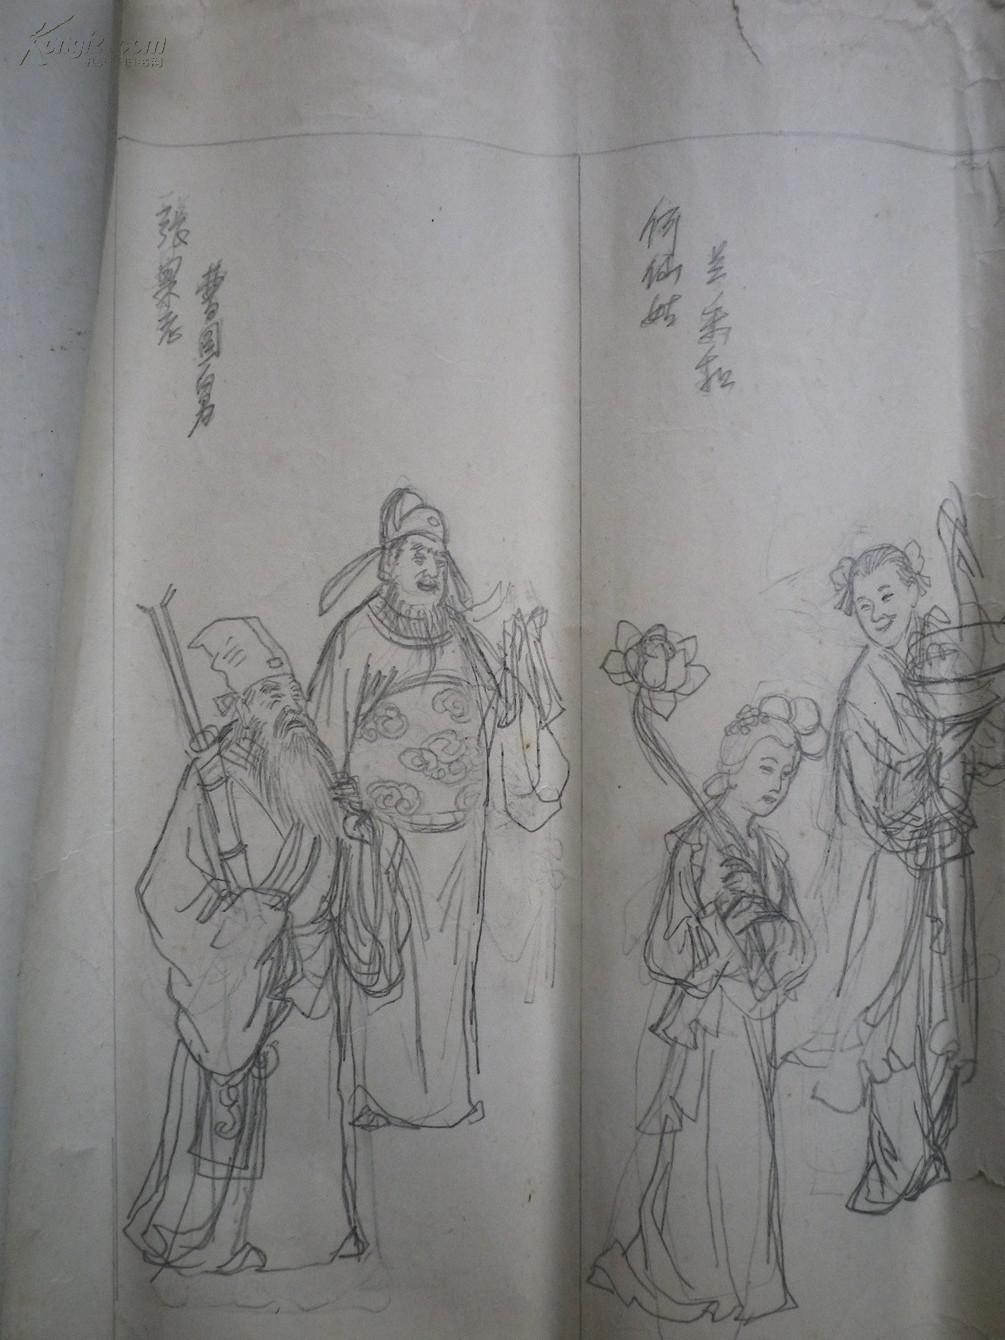 Kongfz.com
孔夫子旧书网
張果老
曹国舅
何仙姑
兰采和